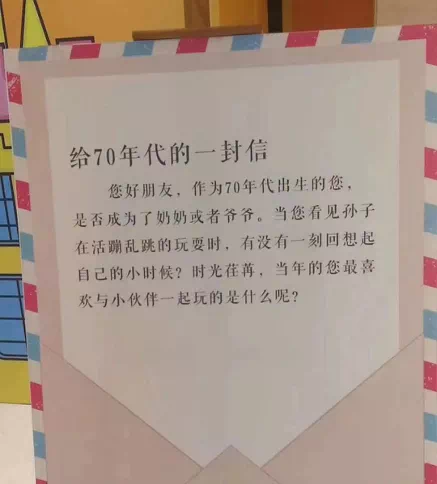 给70年代的一封信
您好朋友，作为70年代出生的您，
是否成为了奶奶或者爷爷。当您看见孙子
在活蹦乱跳的玩耍时，有没有一刻回想起
自己的小时候？时光荏苒，当年的您最喜
欢与小伙伴一起玩的是什么呢？